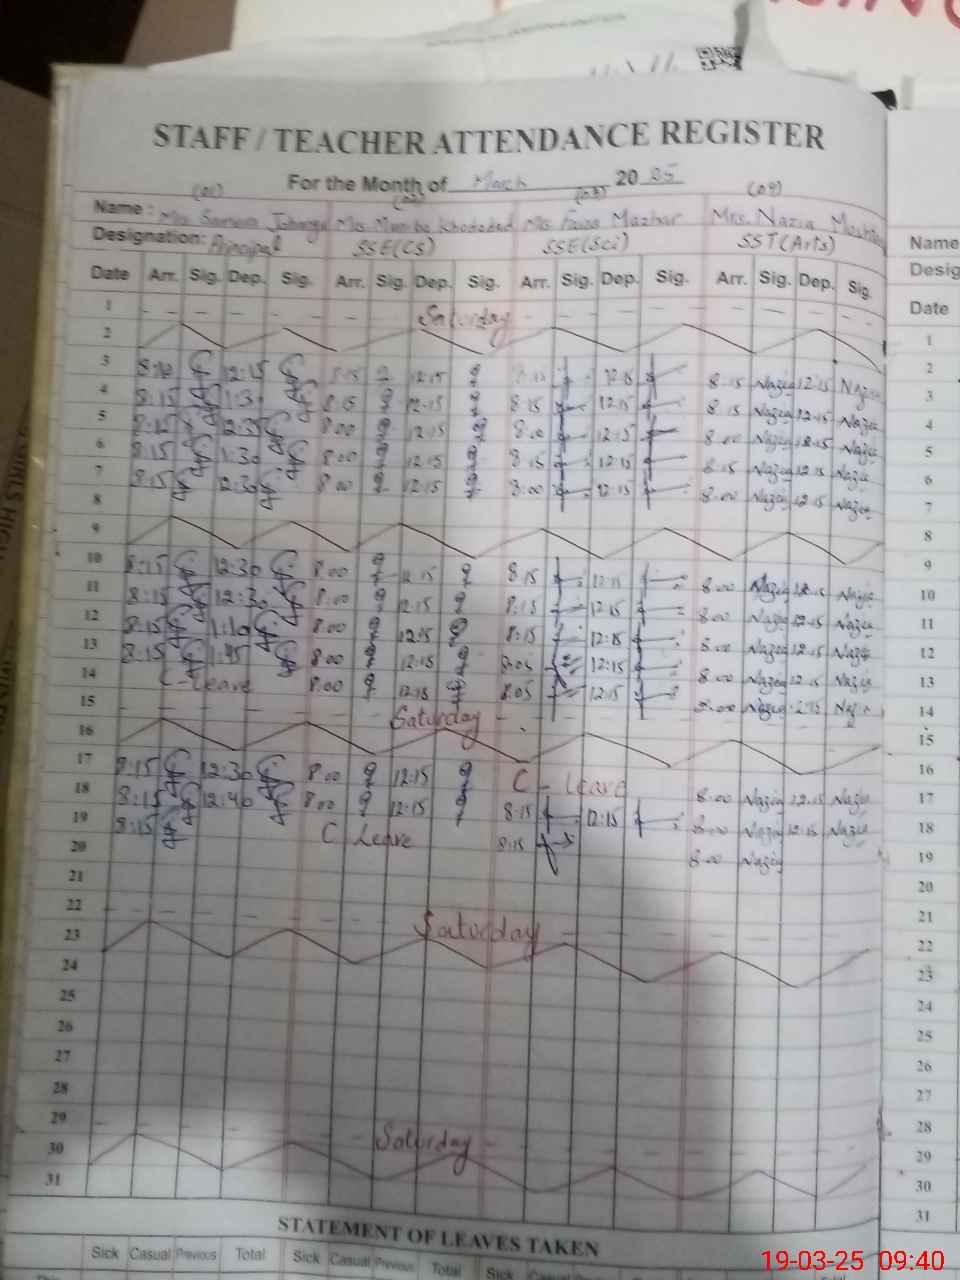 STAFF / TEACHER ATTENDANCE REGISTER
For the Month of March 20 25
(01) (03) (09)
Name : Mrs. Mrs. Mrs. Mazhar Mrs. Nazia
Designation: Principal SSE(CS) SSE(Sci) SST(Arts)
Date Arr. Sig. Dep. Sig. Arr. Sig. Dep. Sig. Arr. Sig. Dep. Sig. Arr. Sig. Dep. Sig.
1 Saturday
2
3 12:15 8:15 12:15 12:15 8:15 Nazia 12:15 Nazia
4 8:15 1:30 8:15 12:15 8:15 12:15 8:15 Nazia 12:15 Nazia
5 8:15 12:35 8:00 12:15 8:00 12:15 8:00 Nazia 12:15 Nazia
6 8:15 1:30 8:00 12:15 8:15 12:15 8:15 Nazia 12:15 Nazia
7 8:15 12:30 8:00 12:15 8:00 12:15 8:00 Nazia 12:15 Nazia
8
9
10 8:15 12:30 8:00 12:15 8:15 12:15 8:00 Nazia 12:15 Nazia
11 8:15 12:30 8:00 12:15 8:15 12:15 8:00 Nazia 12:15 Nazia
12 8:15 1:10 8:00 12:15 8:15 12:15 8:00 Nazia 12:15 Nazia
13 8:15 1:45 8:00 12:15 8:05 12:15 8:00 Nazia 12:15 Nazia
14 C-Leave 8:00 12:15 8:05 12:15 8:00 Nazia Nazia
15 Saturday
16
17 8:15 12:30 8:00 12:15 C - Leave 8:00 Nazia 12:15 Nazia
18 8:15 12:40 8:00 12:15 8:15 12:15 8:00 Nazia 12:15 Nazia
19 8:15 C Leave 8:15 8:00 Nazia
20
21
22 Saturday
23
24
25
26
27
28
29 Saturday
30
31
STATEMENT OF LEAVES TAKEN
Sick Casual Previous Total Sick Casual Previous Total Sick Casual
Name
Desig
Date
1
2
3
4
5
6
7
8
9
10
11
12
13
14
15
16
17
18
19
20
21
22
23
24
25
26
27
28
29
30
31
19-03-25 09:40